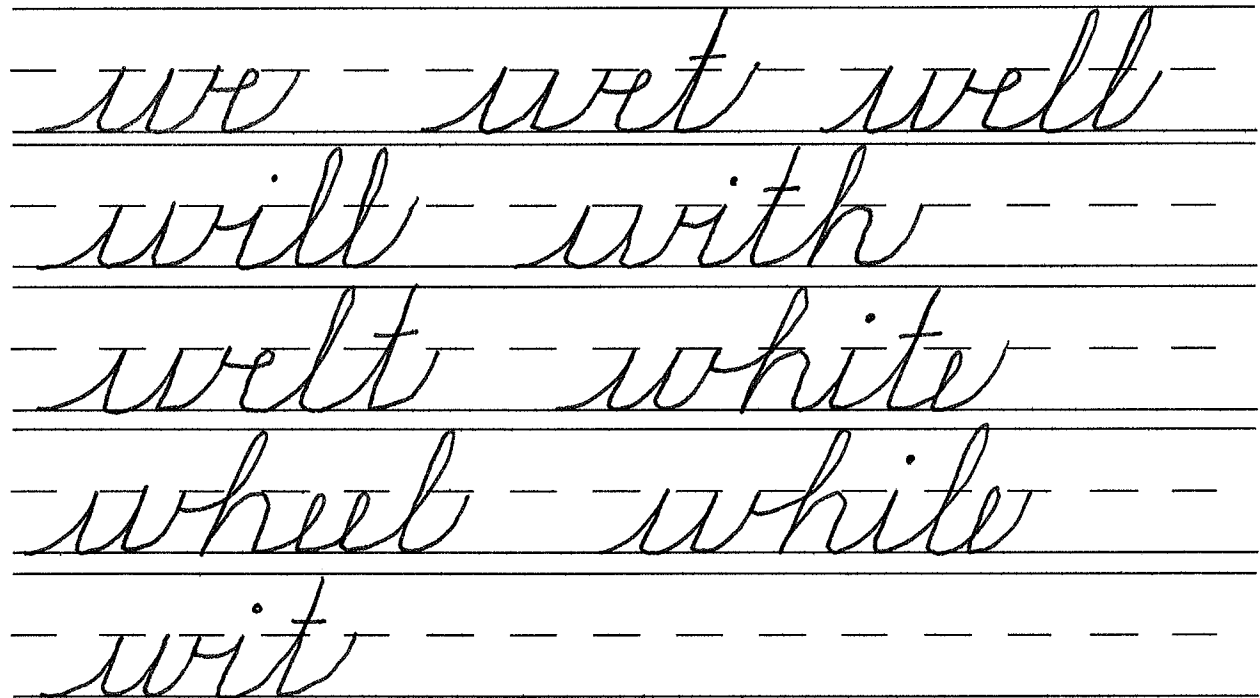 we wet well
will with
welt white
wheel while
wit